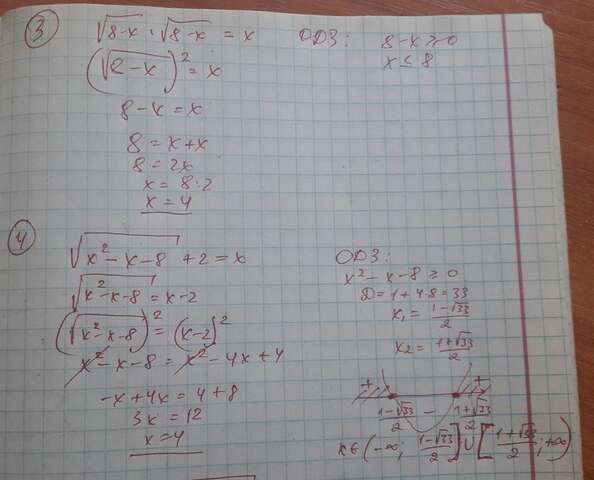 ③ √8-x · √8-x = x
ОДЗ: 8-x ≥ 0
x ≤ 8
(√8-x)² = x
8-x = x
8 = x+x
8 = 2x
x = 8:2
x = 4
④ √x²-x-8 + 2 = x
√x²-x-8 = x-2
(√x²-x-8)² = (x-2)²
x²-x-8 = x²-4x+4
-x+4x = 4+8
3x = 12
x = 4
ОДЗ:
x²-x-8 ≥ 0
D = 1+4·8 = 33
x₁ = (1-√33)/2
x₂ = (1+√33)/2
+ - +
(1-√33)/2 (1+√33)/2
x∈(-∞; (1-√33)/2] ∪ [(1+√33)/2; +∞)